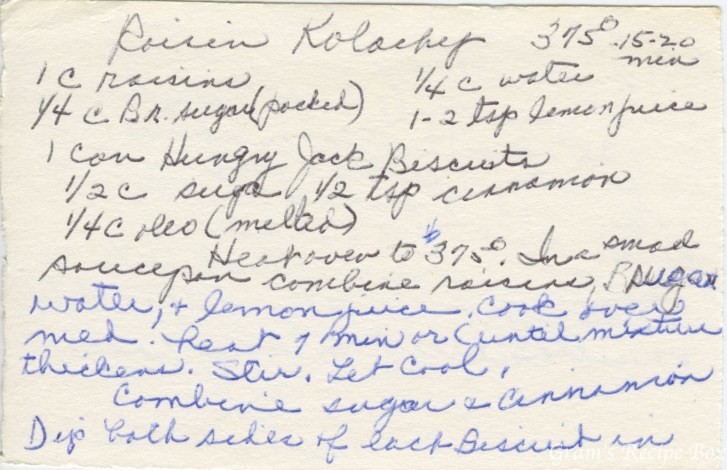 Raisin Kolachy 375° 15-20 min
1 c raisins 1/4 c water
1/4 c Br. sugar (packed) 1-2 tsp lemon juice
1 can Hungry Jack Biscuits
1/2 c sugar 1/2 tsp cinnamon
1/4 c oleo (melted)
Heat oven to 375°. In a small
saucepan combine raisins, B sugar
water, + lemon juice. Cook over
med. heat 7 min or (until mixture
thickens. Stir. Let Cool.
Combine sugar & Cinnamon
Dip both sides of each Biscuit in
Gram's Recipe Box